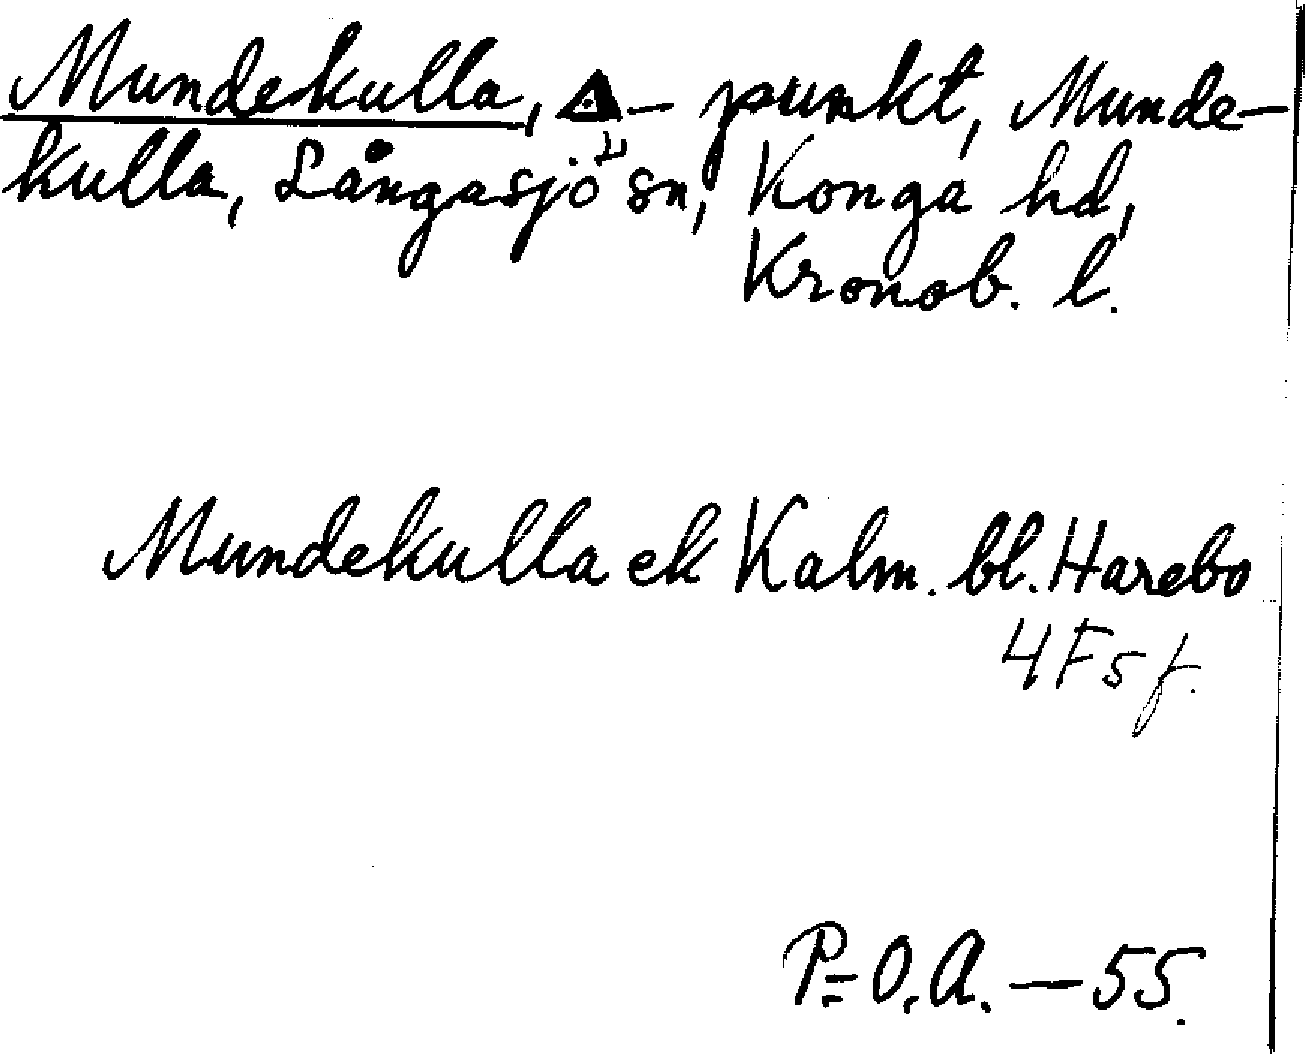 Mundekulla, △ – punkt, Munde-
kulla, Långasjö sn, Konga hd,
Kronob. l.
Mundekulla ek Kalm. bl. Harebo
4F5f.
P-O.A. — 55.